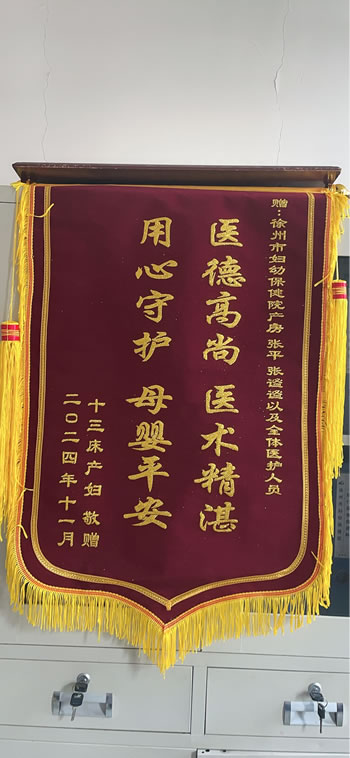 赠：徐州市妇幼保健院产房 张平 张谧谧以及全体医护人员
医德高尚 医术精湛
用心守护 母婴平安
十三床产妇 敬赠
二〇二四年十一月